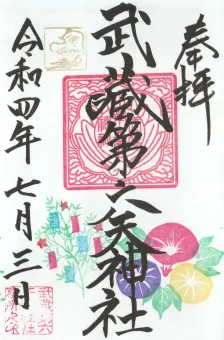 奉拝
武蔵第六天神社
令和四年七月三日